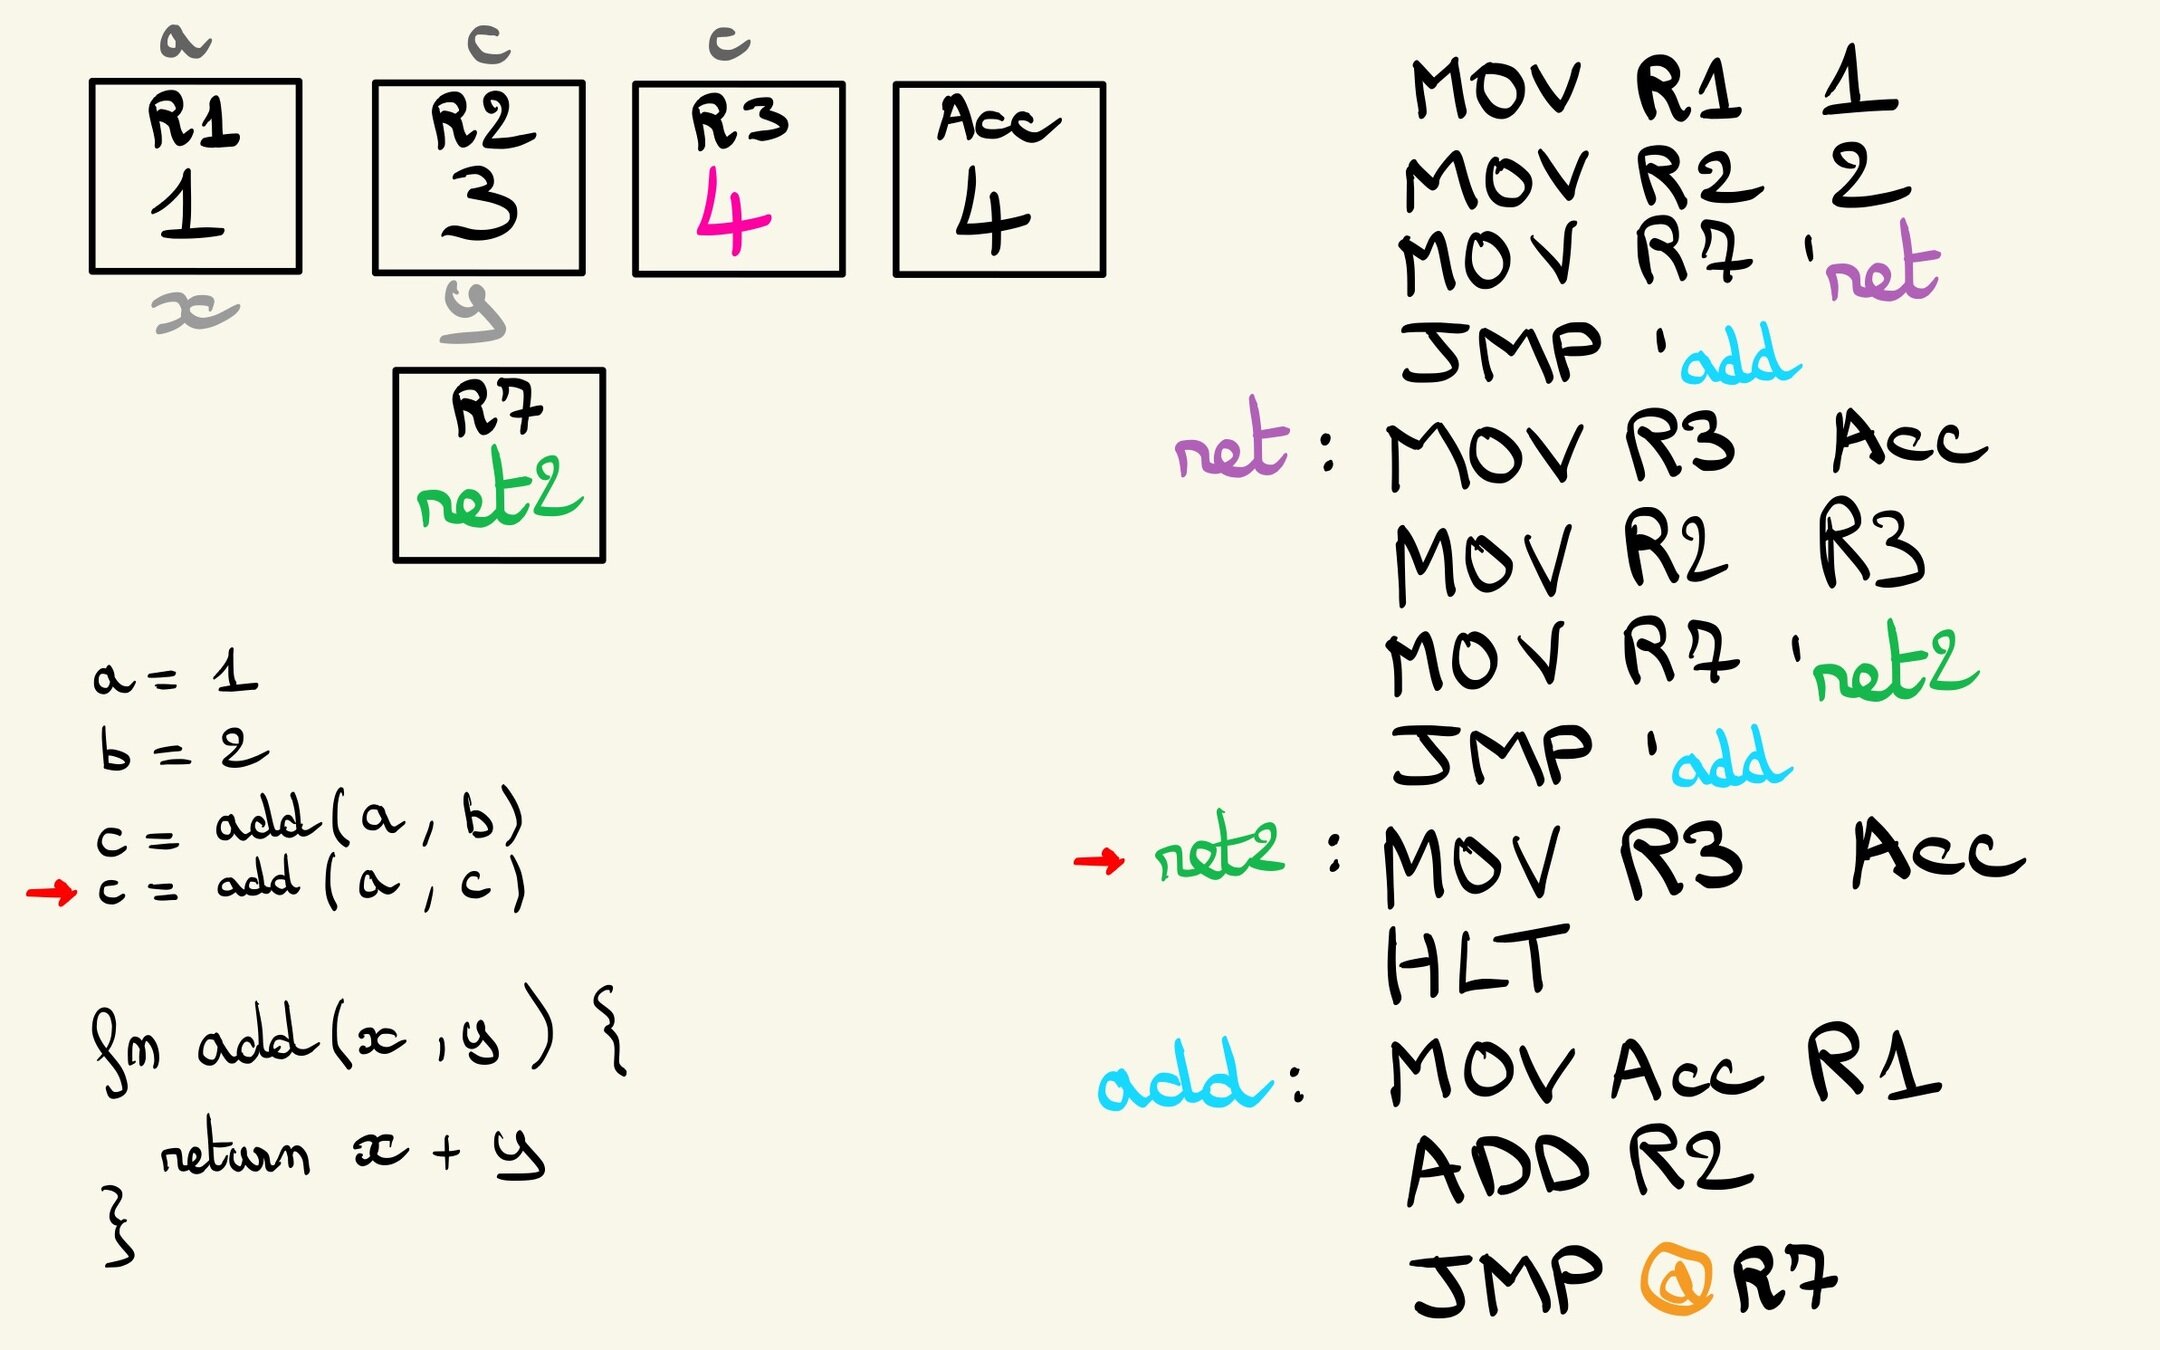 a c c
R1 R2 R3 Acc
1 3 4 4
x y
R7
ret2
a = 1
b = 2
c = add(a, b)
→ c = add(a, c)
fn add(x, y) {
return x + y
}
MOV R1 1
MOV R2 2
MOV R7 'ret
JMP 'add
ret: MOV R3 Acc
MOV R2 R3
MOV R7 'ret2
JMP 'add
→ ret2: MOV R3 Acc
HLT
add: MOV Acc R1
ADD R2
JMP @R7